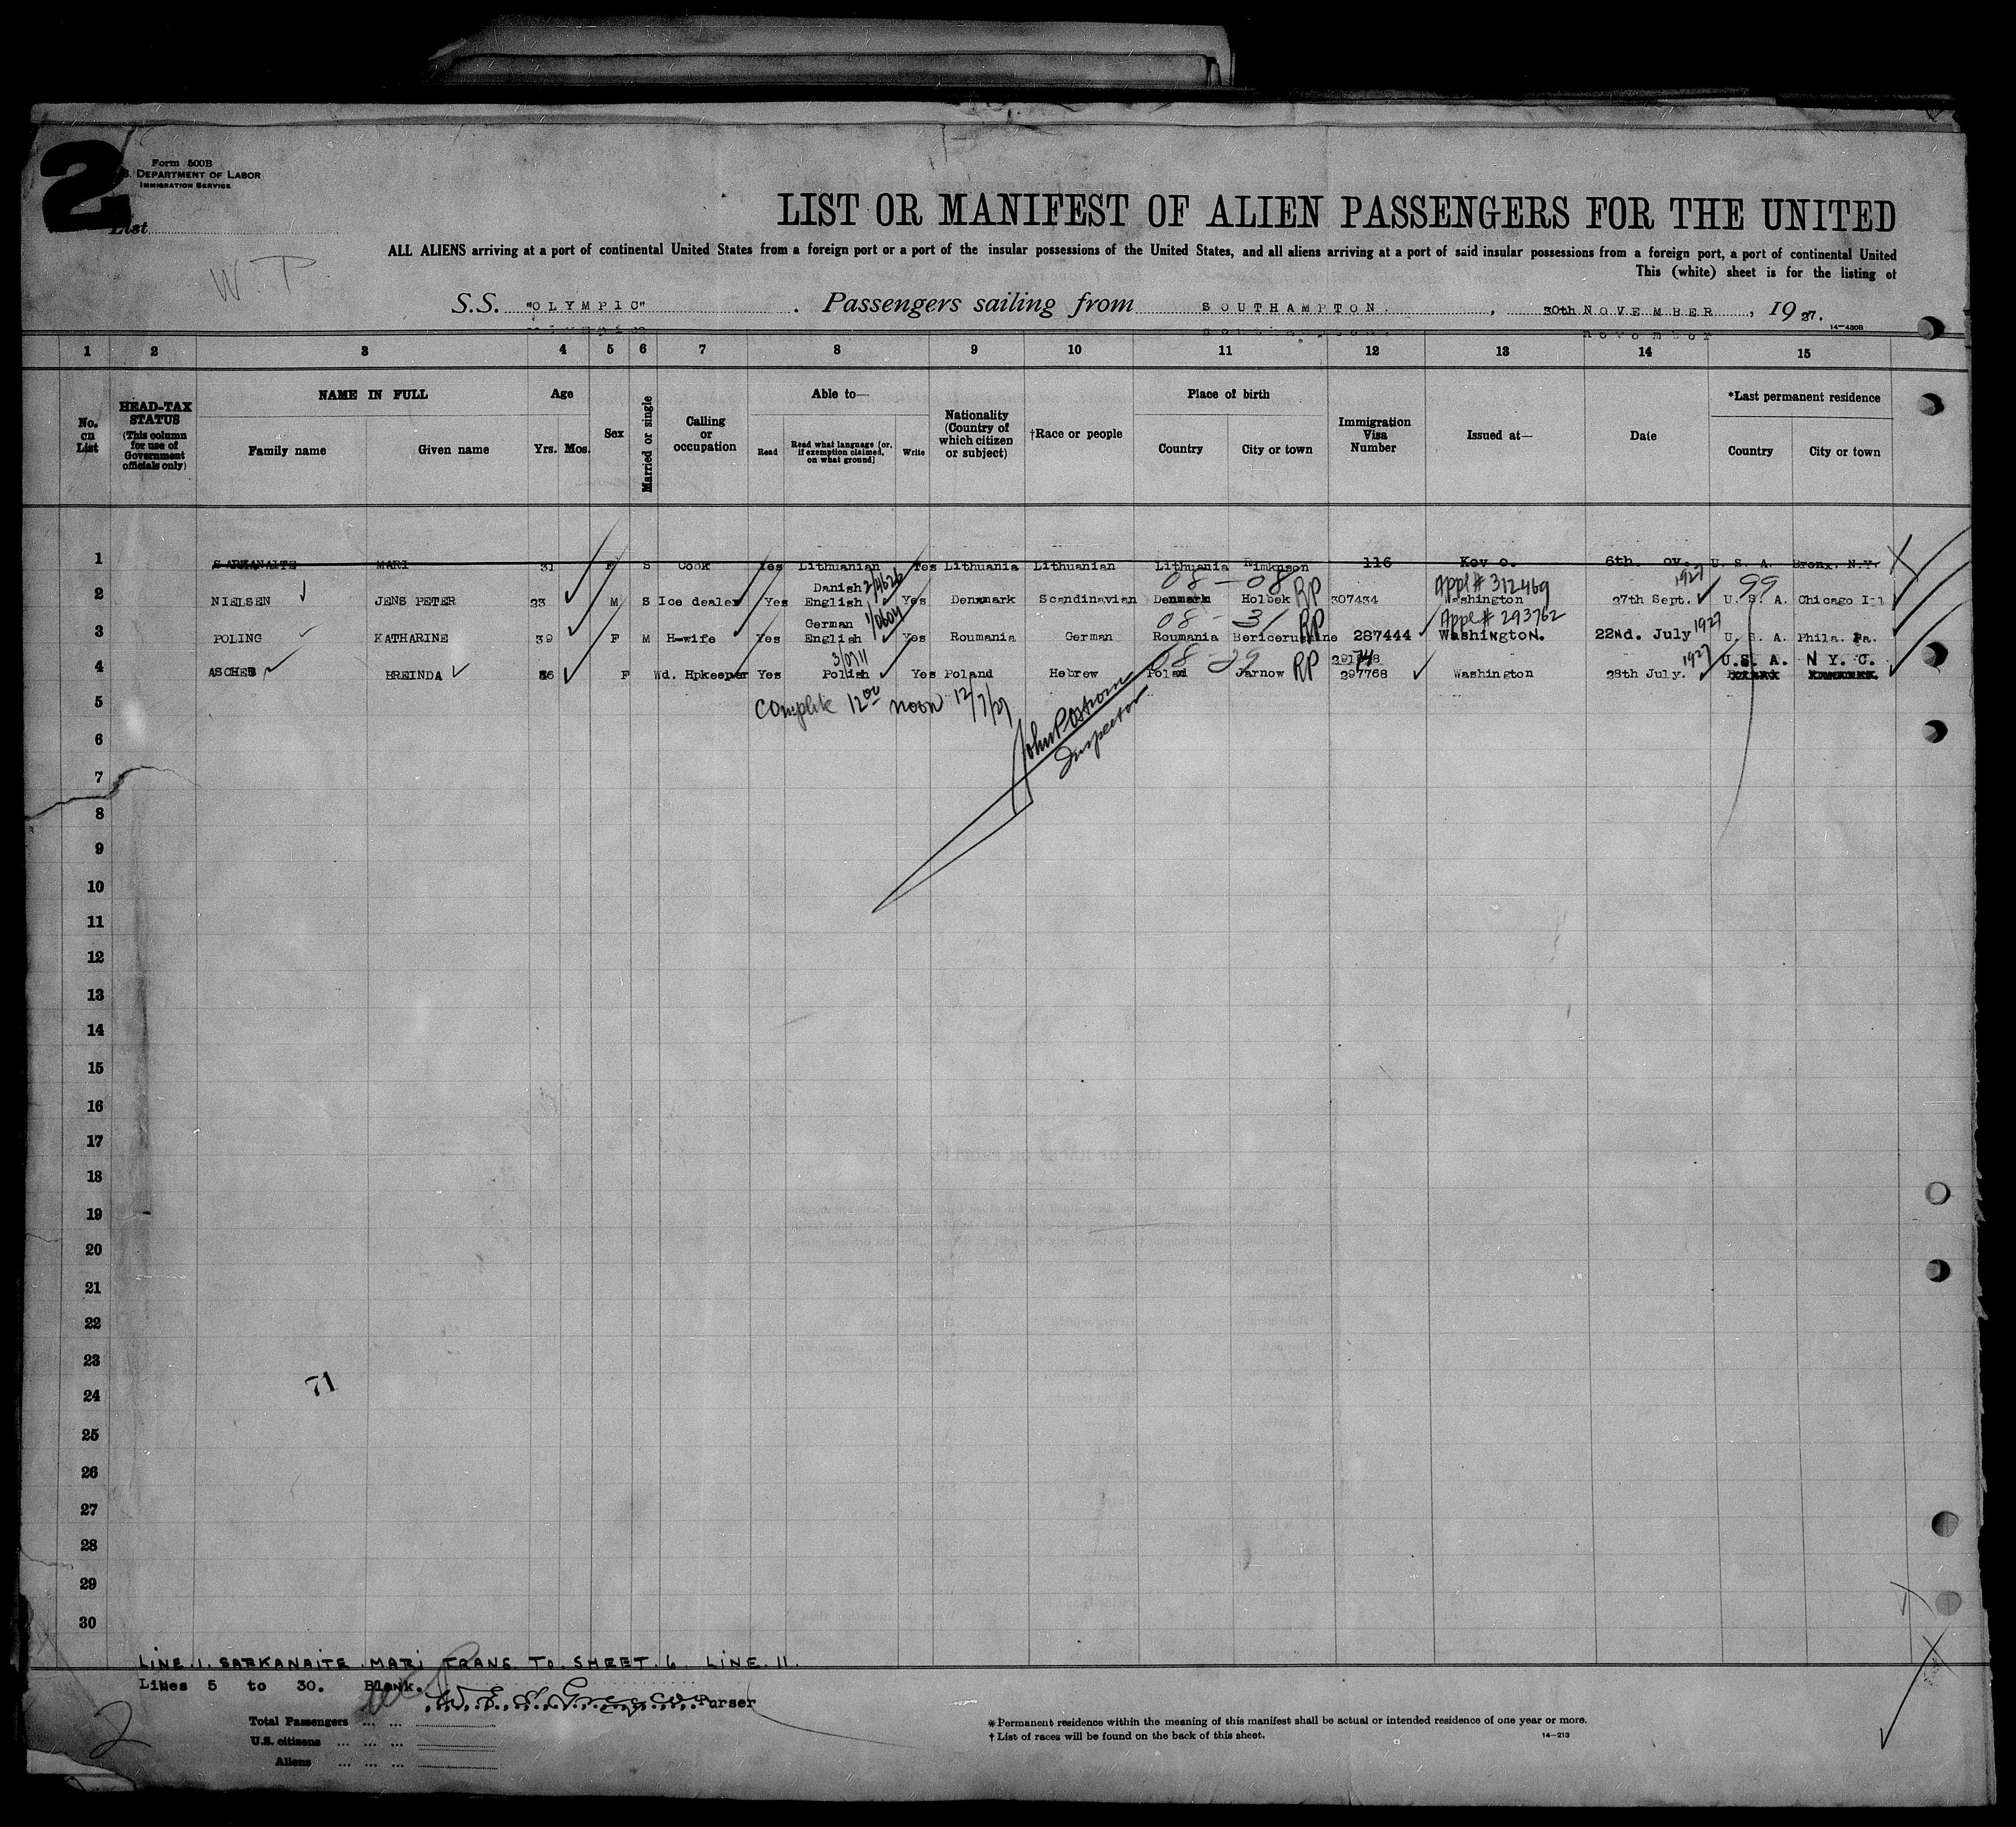 2
Form 500B
U.S. DEPARTMENT OF LABOR
IMMIGRATION SERVICE
List
W.T.
LIST OR MANIFEST OF ALIEN PASSENGERS FOR THE UNITED
ALL ALIENS arriving at a port of continental United States from a foreign port or a port of the insular possessions of the United States, and all aliens arriving at a port of said insular possessions from a foreign port, a port of continental United
This (white) sheet is for the listing of
S.S. "OLYMPIC" . Passengers sailing from SOUTHAMPTON , 30th NOVEMBER , 1927.
14-430B
1 2 3 4 5 6 7 8 9 10 11 12 13 14 15
No. on List
HEAD-TAX STATUS (This column for use of Government officials only)
NAME IN FULL
Family name Given name
Age
Yrs. Mos.
Sex
Married or single
Calling or occupation
Able to—
Read Read what language [or, if exemption claimed, on what ground] Write
Nationality (Country of which citizen or subject)
†Race or people
Place of birth
Country City or town
Immigration Visa Number
Issued at—
Date
*Last permanent residence
Country City or town
1 SARKANAITE MARI 31 F S Cook Yes Lithuanian Yes Lithuania Lithuanian Lithuania 116 Kov o. 6th. ov. U. S. A. Bronx. N.Y.
Danish 2/4626 08 - 08 RP Appl # 312469 1927 99
2 NIELSEN JENS PETER 23 M S Ice dealer Yes English Yes Denmark Scandinavian Denmark Holbek 307434 Washington 27th Sept. U. S. A. Chicago Ill
German 1/0604 08 - 31 RP Appl # 293762 1927
3 POLING KATHARINE 39 F M H-wife Yes English Yes Roumania German Roumania 287444 Washington. 22nd. July U. S. A. Phila. Pa.
3/0711 08 - 29 RP 1927 U.S. A. N Y. C.
4 ASCHER BREINDA 56 F Wd. Hpkeeper Yes Polish Yes Poland Hebrew Poland Jarnow 297768 Washington 28th July.
5
Complete 12 00 noon 12/7/27
John P Ostrom
Inspector
6
7
8
9
10
11
12
13
14
15
16
17
18
19
20
21
22
23
71
24
25
26
27
28
29
30
LINE. 1. SARKANAITE MARI TRANS TO. SHEET. 6 LINE. 11.
Lines 5 to 30. Blank.
Purser
2
Total Passengers ... ...
U.S. citizens ... ... ...
Aliens ... ... ...
*Permanent residence within the meaning of this manifest shall be actual or intended residence of one year or more.
†List of races will be found on the back of this sheet.
14-213